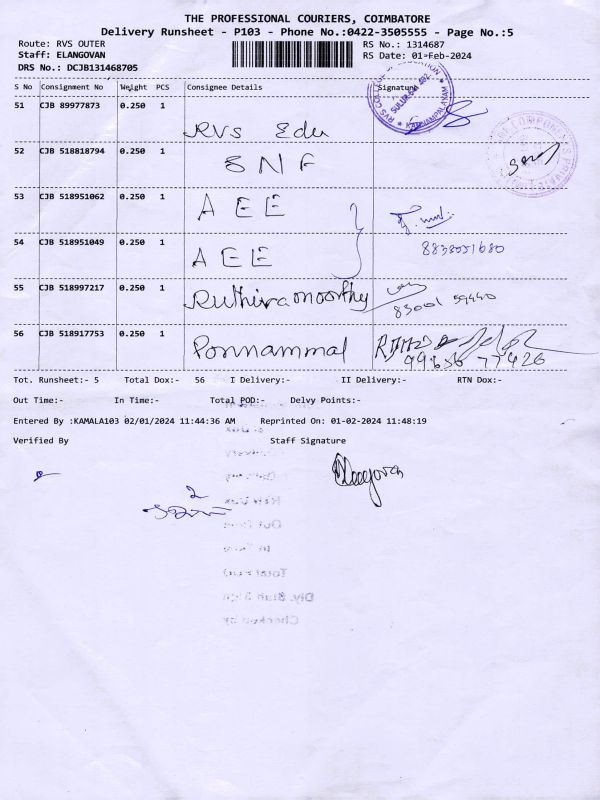 THE PROFESSIONAL COURIERS, COIMBATORE
Delivery Runsheet - P103 - Phone No.:0422-3505555 - Page No.:5
Route: RVS OUTER RS No.: 1314687
Staff: ELANGOVAN RS Date: 01-Feb-2024
DRS No.: DCJB131468705
S No Consignment No Weight PCS Consignee Details Signature
51 CJB 89977873 0.250 1
RVS Edu
52 CJB 518818794 0.250 1
SNF
53 CJB 518951062 0.250 1
AEE
54 CJB 518951049 0.250 1
AEE
55 CJB 518997217 0.250 1
Ruthiramoorthy
56 CJB 518917753 0.250 1
Ponnammal
99656 77426
Tot. Runsheet:- 5 Total Dox:- 56 I Delivery:- II Delivery:- RTN Dox:-
Out Time:- In Time:- Total POD:- Delvy Points:-
Entered By :KAMALA103 02/01/2024 11:44:36 AM Reprinted On: 01-02-2024 11:48:19
Verified By Staff Signature
Elangovan